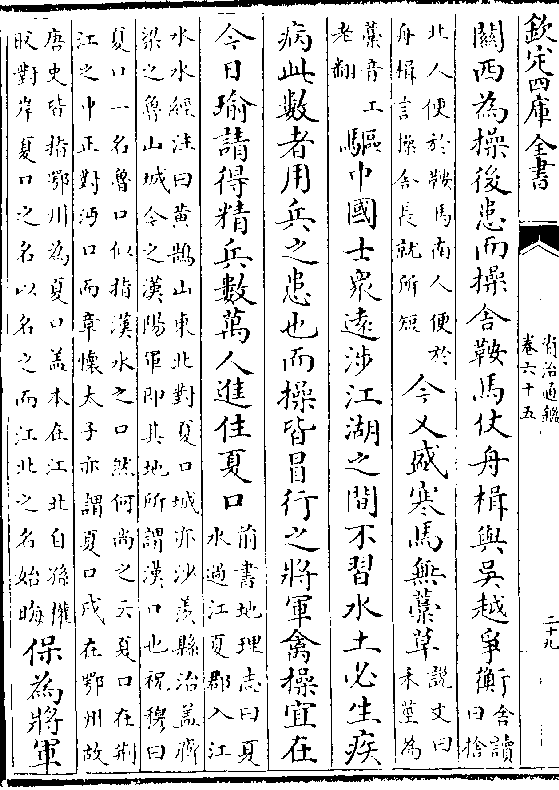 欽定四庫全書
資治通鑑
卷六十五
二十九
關西為操後患而操舍鞍馬仗舟楫與吳越爭衡舍讀
曰捨
北人便於鞍馬南人便於
舟楫言操舍長就所短
今又盛寒馬無藁草說文曰
禾莖為
藁音工
老翻
驅中國士衆遠涉江湖之間不習水土必生疾
病此數者用兵之患也而操皆冒行之將軍禽操宜在
今日瑜請得精兵數萬人進住夏口前書地理志曰夏
水過江夏郡入江
水水經注曰黃鵠山東北對夏口城亦沙羡縣治盖齊
梁之魯山城今之漢陽軍即其地所謂漢口也祝穆曰
夏口一名魯口似指漢水之口然何尚之云夏口在荆
江之中正對沔口而章懷太子亦謂夏口戍在鄂州故
唐史皆指鄂州為夏口盖本在江北自孫權
取對岸夏口之名以名之而江北之名始晦
保為將軍